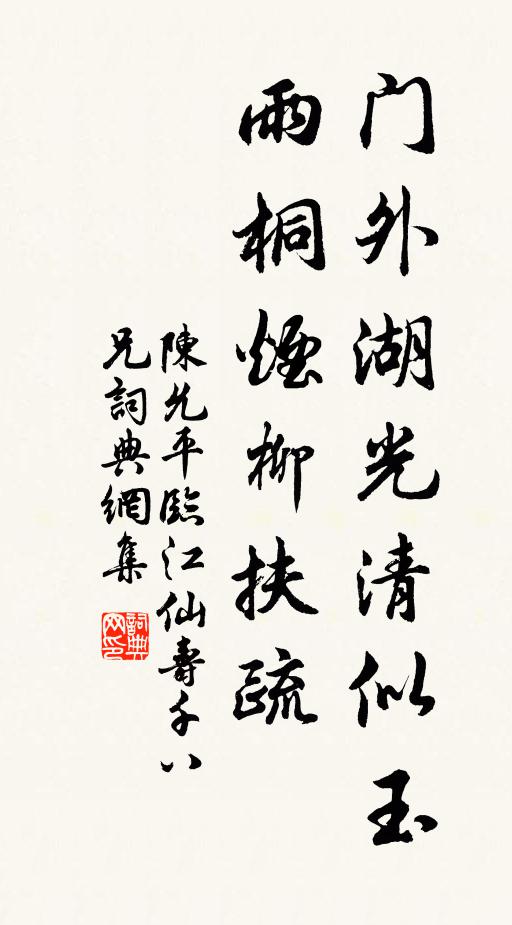 门外湖光清似玉
雨桐煙柳扶疏
陳允平臨江仙壽千八
兄詞典網集
詞典
网印